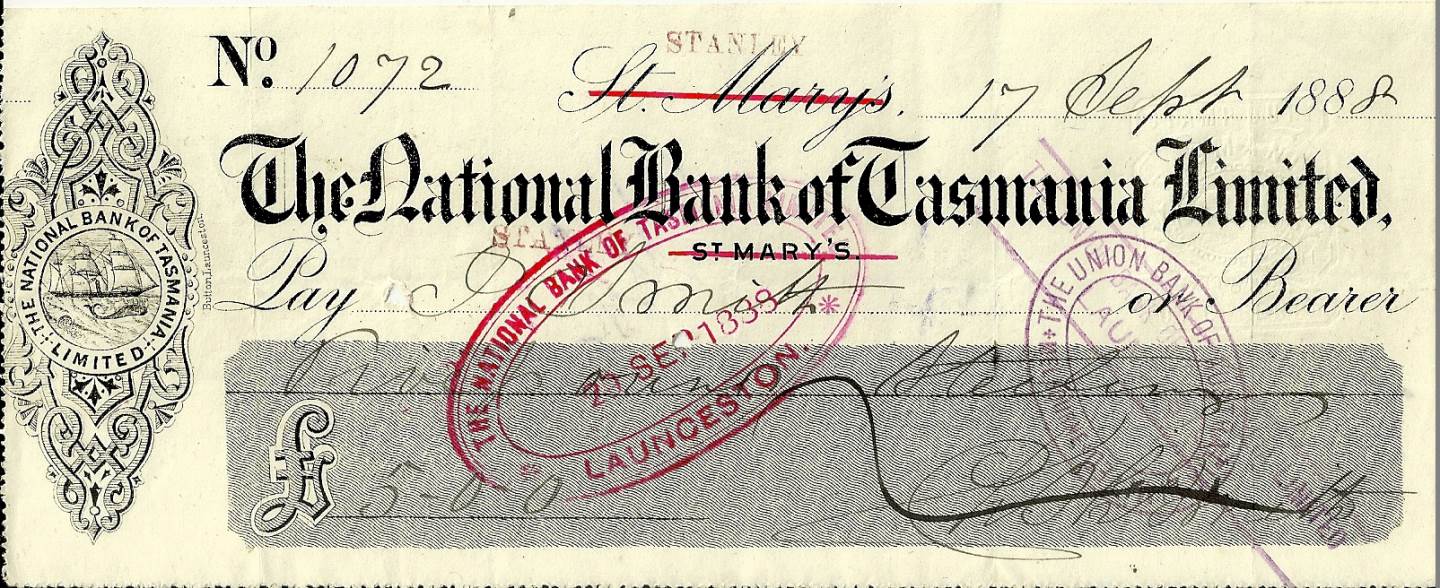 STANLEY
No. 1072 St. Mary's. 17 Sept 1888
The National Bank of Tasmania Limited,
ST MARY'S.
Pay Smith or Bearer
Five Sterling
£ 5-0 0
THE NATIONAL BANK OF TASMANIA LIMITED
Button, Launceston.
THE NATIONAL BANK OF TASMANIA
SEP 1888
LAUNCESTON.
THE UNION BANK OF